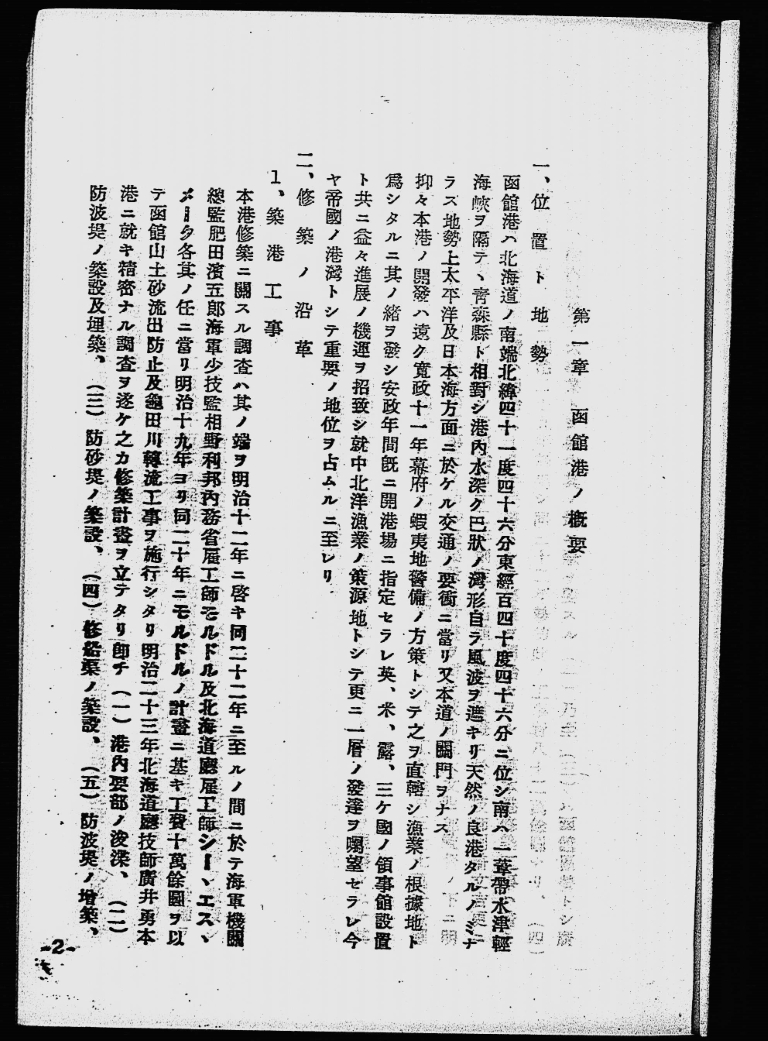 第一章 函館港ノ概要
一、位置ト地勢
函館港ハ北海道ノ南端北緯四十一度四十六分東經百四十度四十六分ニ位シ南ハ一葦帶水津輕
海峽ヲ隔テヽ靑森縣ト相對シ港內水深ク巴狀ノ灣形自ラ風波ヲ遮キリ天然ノ良港タルノミナ
ラズ地勢上太平洋及日本海方面ニ於ケル交通ノ要衝ニ當リ又本道ノ關門ヲナス
抑々本港ノ開發ハ遠ク寬政十一年幕府ノ蝦夷地警備ノ方策トシテ之ヲ直轄シ漁業ノ根據地ト
爲シタルニ其ノ緖ヲ發シ安政年間旣ニ開港場ニ指定セラレ英、米、露、三ケ國ノ領事館設置
ト共ニ益々進展ノ機運ヲ招致シ就中北洋漁業ノ策源地トシテ更ニ一層ノ發達ヲ囑望セラレ今
ヤ帝國ノ港灣トシテ重要ノ地位ヲ占ムルニ至レリ
二、修築ノ沿革
1、築港工事
本港修築ニ關スル調査ハ其ノ端ヲ明治十二年ニ啓キ同二十二年ニ至ルノ間ニ於テ海軍機關
總監肥田濱五郞海軍少技監相野利邦內務省雇工師モルドル及北海道廳雇工師シー、エス、
メーク各其ノ任ニ當リ明治十九年ヨリ同二十年ニモルドルノ計畫ニ基キ工費十萬餘圓ヲ以
テ函館山土砂流出防止及龜田川轉流工事ヲ施行シタリ明治二十三年北海道廳技師廣井勇本
港ニ就キ精密ナル調査ヲ遂ケ之カ修築計畫ヲ立テタリ卽チ（一）港內要部ノ浚渫、（二）
防波堤ノ築設及埋築、（三）防砂堤ノ築設、（四）修船渠ノ築設、（五）防波堤ノ增築、
-2-